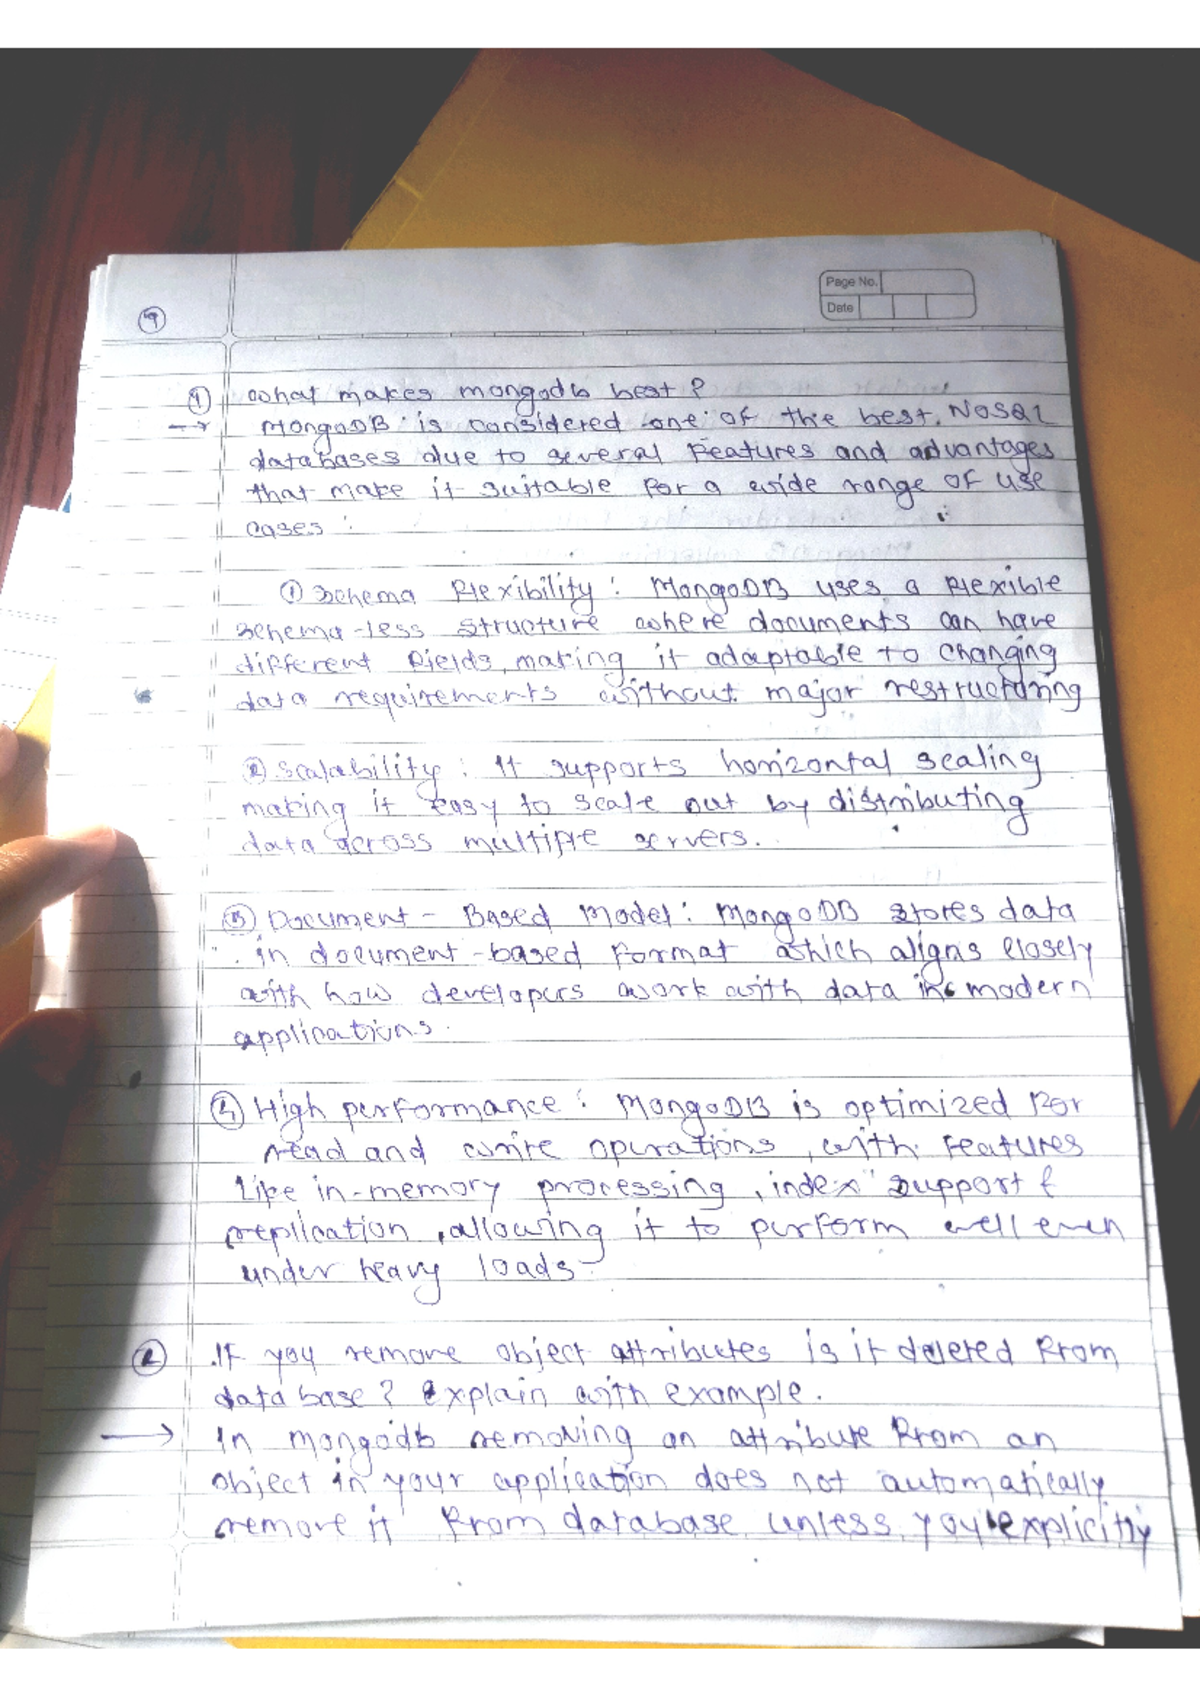 Page No.
Date
9
1 What makes mongodb best?
→ MongoDB is considered one of the best NoSQL
databases due to several features and advantages
that make it suitable for a wide range of use
cases :
① Schema flexibility : MongoDB uses a flexible
schema-less structure where documents can have
different fields, making it adaptable to changing
data requirements without major restructuring
② Scalability : It supports horizontal scaling
making it easy to scale out by distributing
data across multiple servers.
③ Document - Based Model : MongoDB stores data
in document-based format which aligns closely
with how developers work with data in modern
applications.
④ High performance : MongoDB is optimized for
read and write operations, with features
like in-memory processing, index support &
replication, allowing it to perform well even
under heavy loads.
② If you remove object attributes is it deleted from
database? Explain with example.
→ In mongodb removing an attribute from an
object in your application does not automatically
remove it from database unless you explicitly